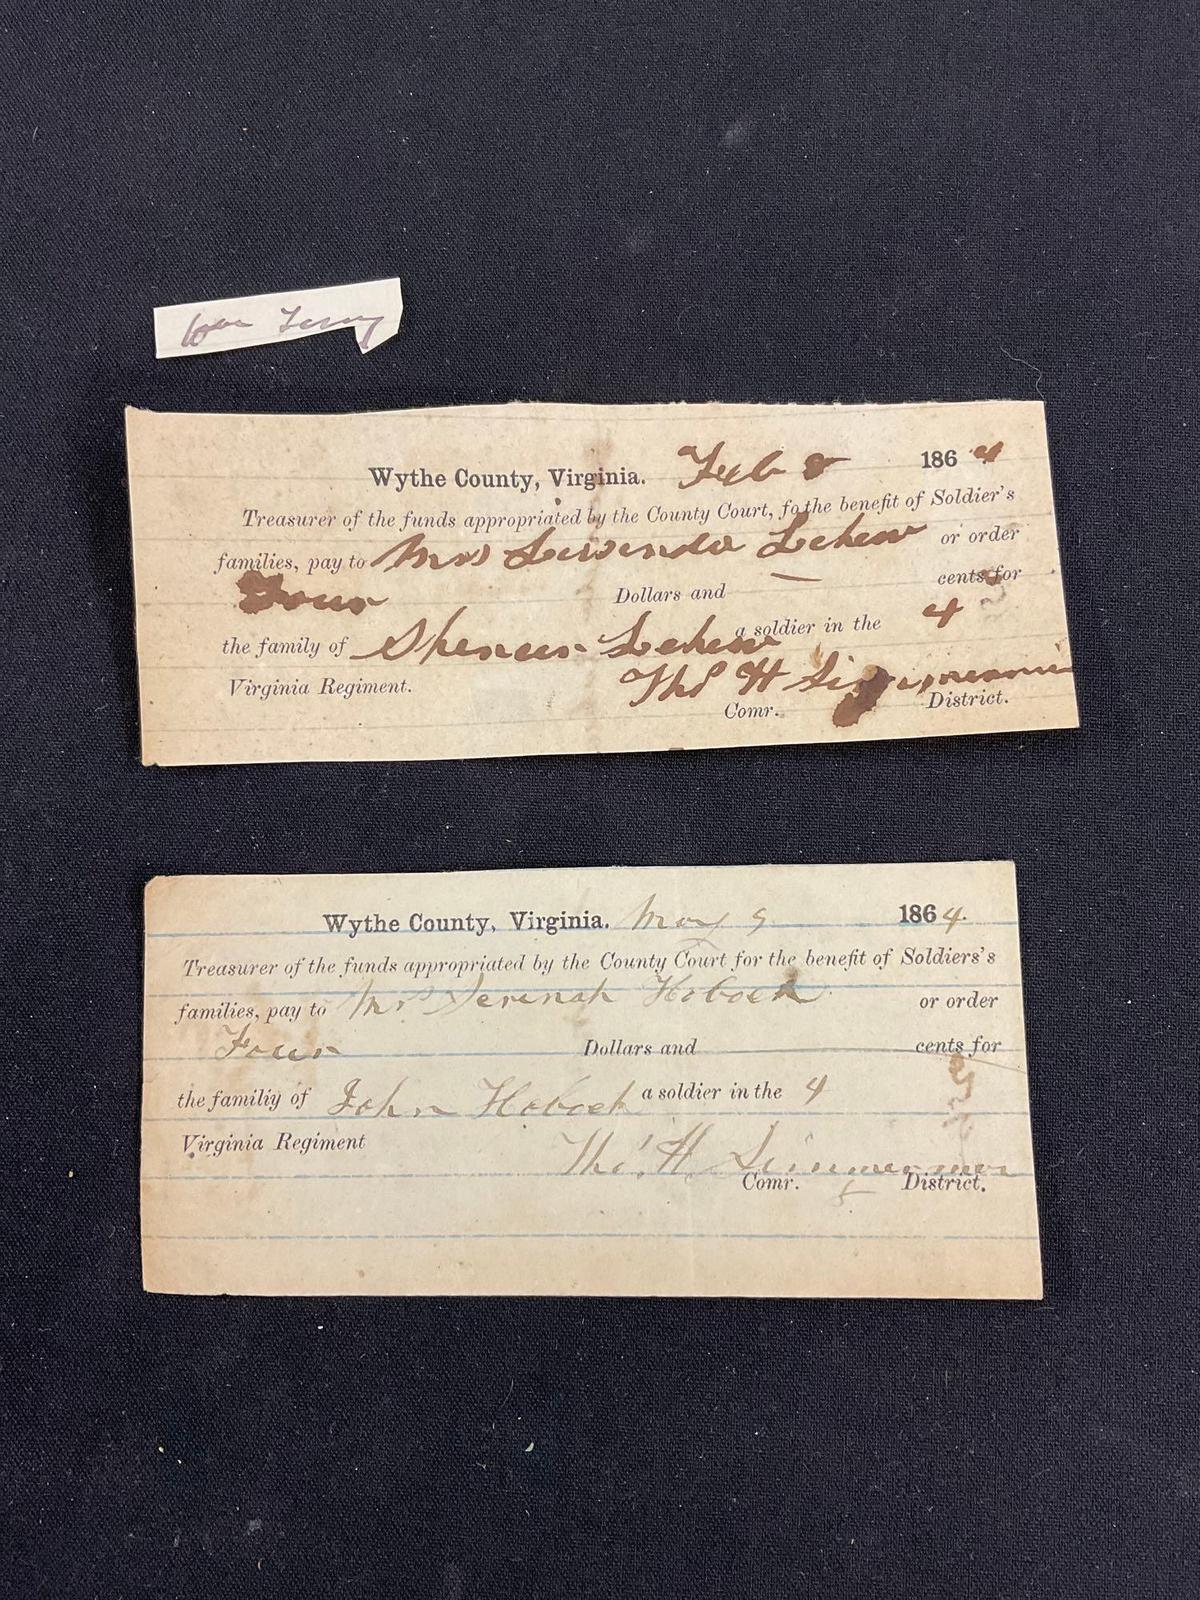 Wm Terry
Wythe County, Virginia. Feb 8 1864
Treasurer of the funds appropriated by the County Court, fo the benefit of Soldier's
families, pay to Mrs Lewende Lehew or order
Four Dollars and — cents for
the family of Spencer Lehew a soldier in the 4
Virginia Regiment. Thos H Simmerman
Comr. District.
Wythe County, Virginia. May 9 1864.
Treasurer of the funds appropriated by the County Court for the benefit of Soldiers's
families, pay to Mrs Serenah Hoback or order
Four Dollars and cents for
the familiy of John Hoback a soldier in the 4
Virginia Regiment Thos. H. Simmerman
Comr. 5 District.